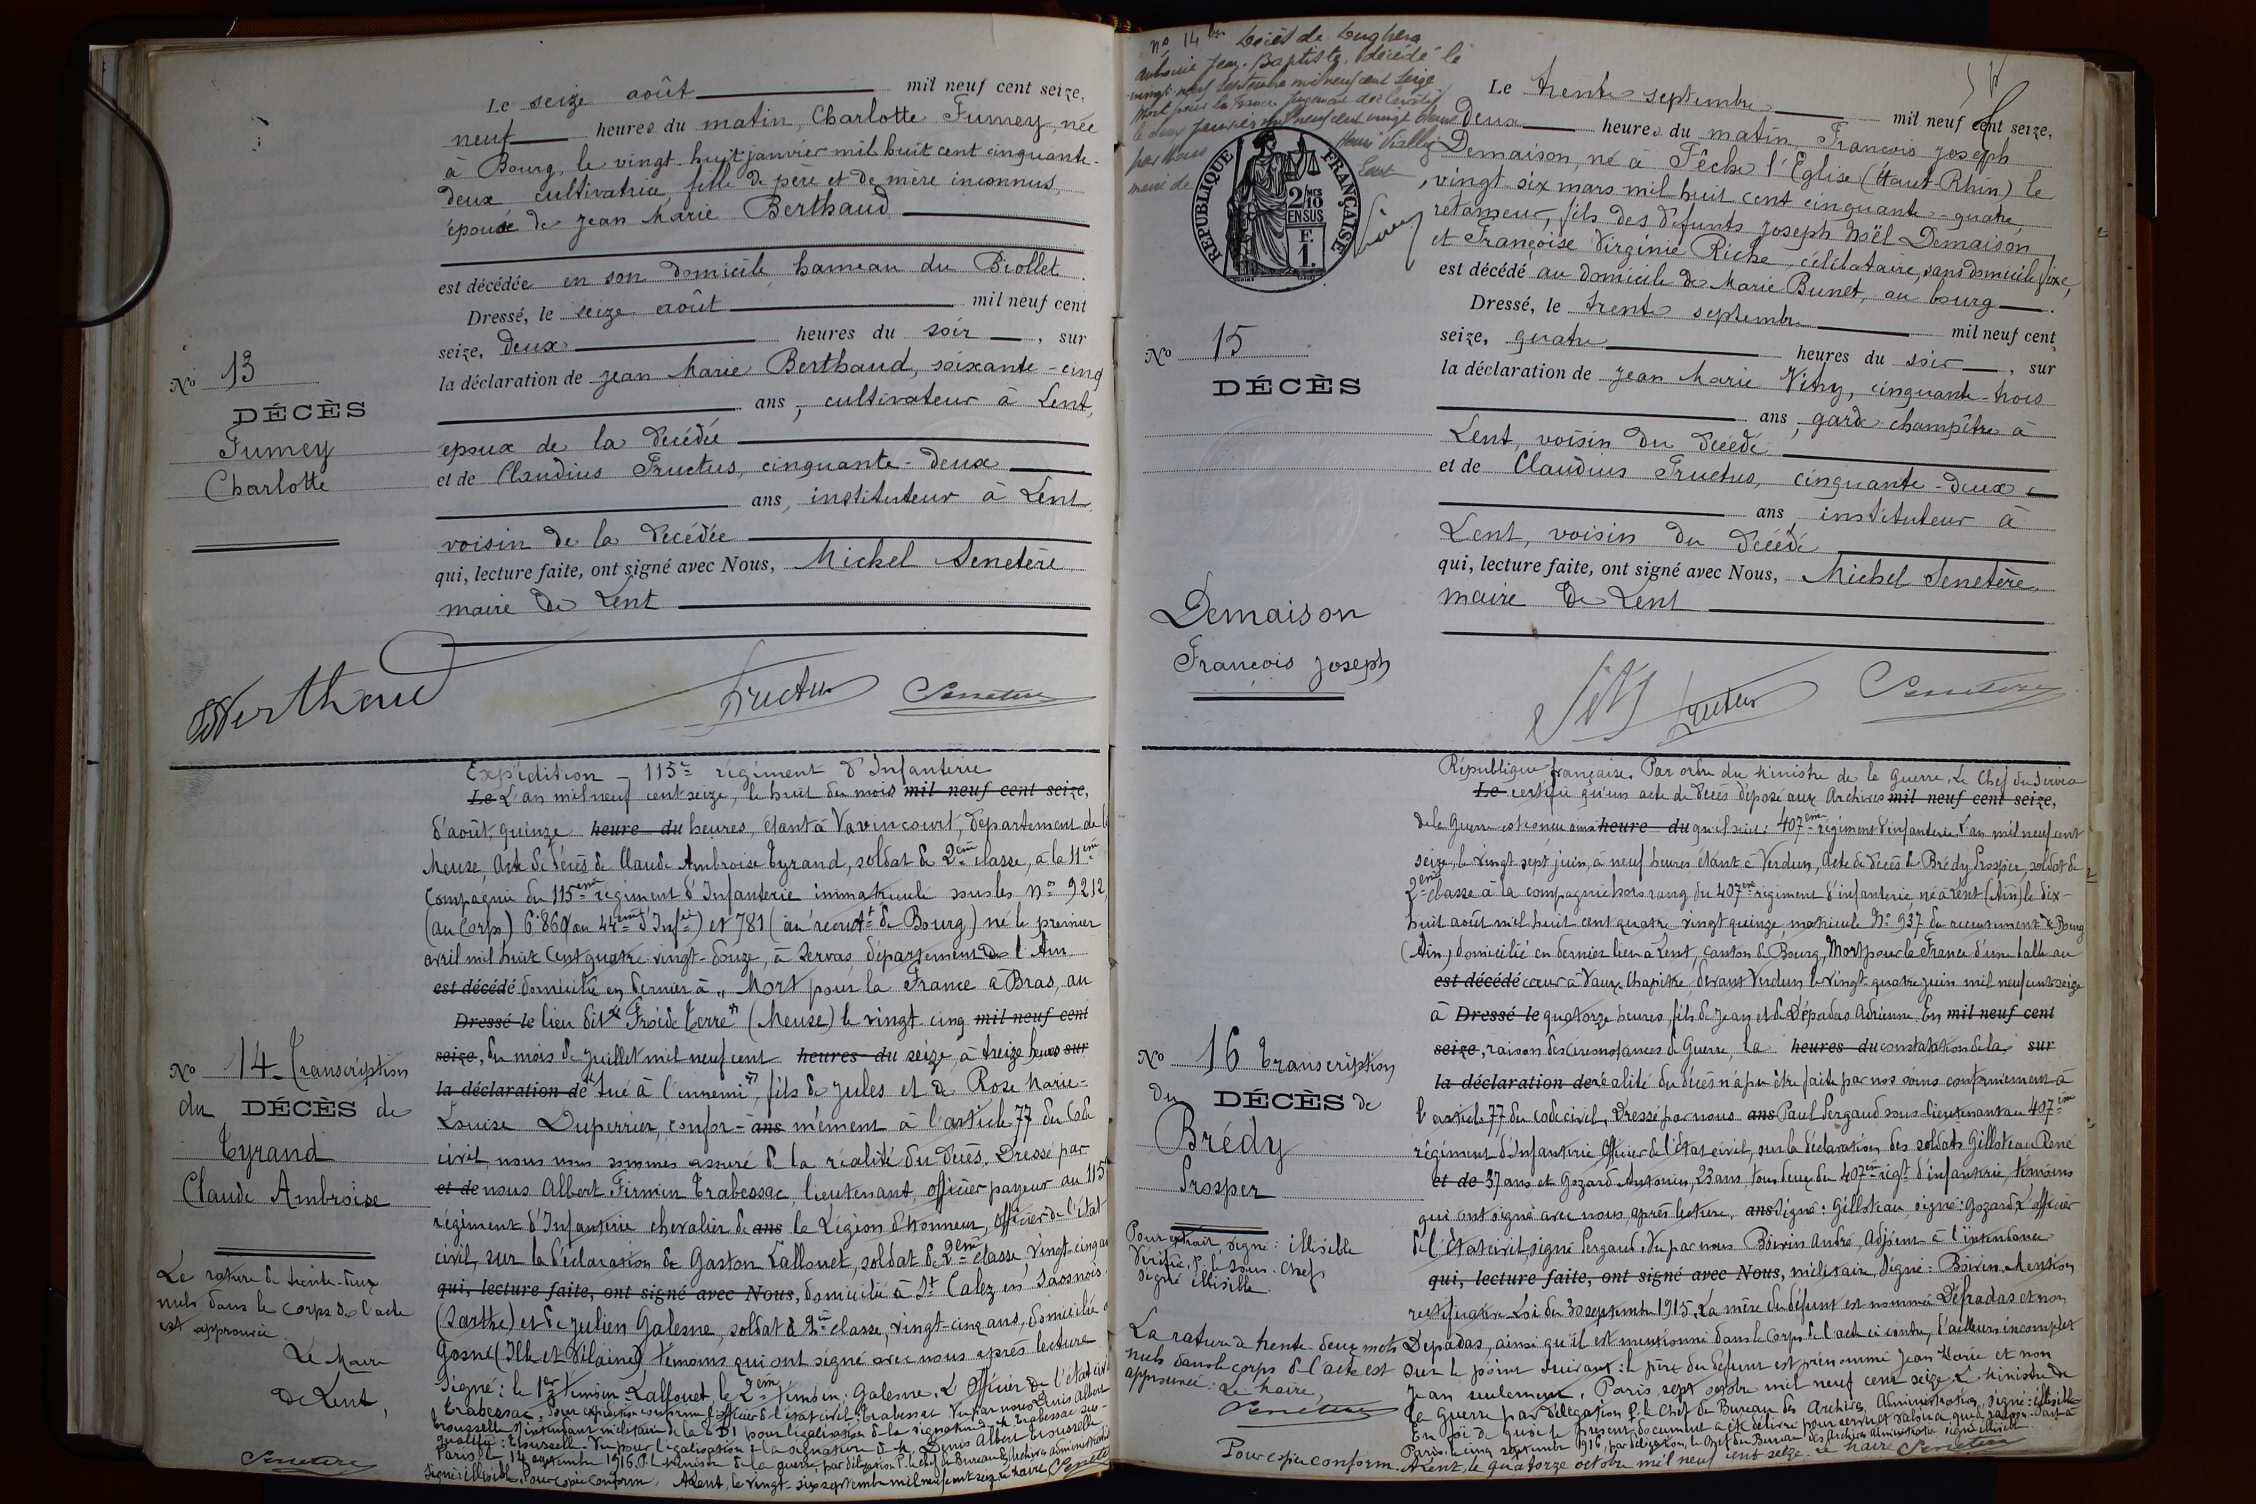 Le seize août mil neuf cent seize,
neuf heures du matin, Charlotte Fumey, née
à Bourg, le vingt-huit janvier mil huit cent cinquante-
deux cultivatrice, fille de père et de mère inconnus,
épouse de Jean Marie Berthaud
est décédée en son domicile, hameau du Biollet.
Dressé, le seize août mil neuf cent
seize, deux heures du soir, sur
la déclaration de Jean Marie Berthaud, soixante-cinq
ans, cultivateur à Lent,
époux de la décédée
et de Claudius Fructus, cinquante-deux
ans, instituteur à Lent,
voisin de la décédée
qui, lecture faite, ont signé avec Nous, Michel Senetère
maire de Lent
No 13
DÉCÈS
Fumey
Charlotte
Berthaud Fructus Senetère
Expédition - 115e régiment d'Infanterie
Le L'an mil neuf cent seize, le huit du mois mil neuf cent seize,
d'août, quinze heure du heures, étant à Vavincourt, département de la
Meuse, Acte de décès de Claude Ambroise Tyrand, soldat de 2ème classe, à la 11ème
Compagnie du 115ème régiment d'Infanterie immatriculé sous les Nos 9212
(au Corps) 6.860 (au 44ème d'Infie) et 781 (au recrutt de Bourg) né le premier
avril mil huit cent quatre-vingt-douze, à Servas, département de l'Ain
est décédé domicilié en dernier à " Mort pour la France à Bras, au
Dressé le lieu dit "Froide terre" (Meuse) le vingt-cinq mil neuf cent
seize, du mois de juillet mil neuf cent heures du seize, à treize heures sur
la déclaration de "tué à l'ennemi", fils de Jules et de Rose Marie-
Louise Duperrier, confor- ans mément à l'article 77 du Code
civil nous nous sommes assuré de la réalité du décès. Dressé par
et de nous Albert Firmin Trabessac, lieutenant, officier payeur au 115e
régiment d'Infanterie chevalier de ans la Légion d'honneur, officier de l'état
civil, sur la déclaration de Gaston Lallouet, soldat de 2ème classe, vingt-cinq ans
qui, lecture faite, ont signé avec Nous, domicilié à St Calez en Saosnois
(Sarthe) et de Julien Galesne, soldat de 2e classe, vingt-cinq ans, domicilié à
Gosné (Ille et Vilaine) témoins qui ont signé avec nous après lecture
Signé: le 1er témoin: Lallouet, le 2ème témoin: Galesne. L'Officier de l'état civil
Trabessac. Pour expédition conforme l'officier de l'état civil: Trabessac. Vu par nous Denis Albert
Trousselle Paris, le 14 septembre 1916.
Signé: illisible. Pour copie conforme. A Lent, le vingt-six septembre mil neuf cent seize Le Maire Senetère
No 14 - Transcription
du DÉCÈS de
Tyrand
Claude Ambroise
La rature de trente-deux
nuls dans le corps de l'acte
est approuvée
Le Maire
de Lent,
Senetère
No 14 bis Décès de
Antoine Jean-Baptiste, décédé le
vingt-neuf septembre mil neuf cent seize
Mort pour la France jugement déclaratif
par nous
maire de Lent
RÉPUBLIQUE FRANÇAISE
2/10MES
EN SUS
F.
1.
Le trente septembre mil neuf cent seize,
deux heures du matin, François Joseph
Demaison, né à Fêche l'Eglise (Haut-Rhin) le
vingt-six mars mil huit cent cinquante-quatre,
rétameur, fils des défunts Joseph Noël Demaison
et Françoise Virginie Riche, célibataire, sans domicile fixe,
est décédé au domicile de Marie Bunet, au bourg.
Dressé, le trente septembre mil neuf cent
seize, quatre heures du soir, sur
la déclaration de Jean Marie Vitry, cinquante-trois
ans, garde-champêtre à
Lent, voisin du décédé
et de Claudius Fructus, cinquante-deux
ans, instituteur à
Lent, voisin du décédé
qui, lecture faite, ont signé avec Nous, Michel Senetère,
maire de Lent
No 15
DÉCÈS
Demaison
François Joseph
Fructus Senetère
République française. Par ordre du Ministre de la Guerre, Le Chef du Service
Le certifie qu'un acte de décès déposé aux Archives mil neuf cent seize,
de la Guerre est conçu ainsi heure du qu'il suit: 407ème régiment d'infanterie. L'an mil neuf cent
seize, le vingt-sept juin, à neuf heures étant à Verdun, Acte de décès de Brédy Prosper, soldat de
2ème classe à la compagnie hors rang du 407ème régiment d'infanterie, né à Lent (Ain) le dix-
huit août mil huit cent quatre-vingt-quinze, matricule No 937 du recrutement de Bourg
(Ain) domicilié en dernier lieu à Lent, canton de Bourg, Mort pour la France d'une balle au
est décédé cœur à Vaux-Chapitre, devant Verdun le vingt-quatre juin mil neuf cent seize
à Dressé le quatorze heures, fils de Jean et de Dépadas Adrienne. En mil neuf cent
seize, raison des circonstances de Guerre, la heures du constatation de la sur
la déclaration de réalité du décès n'a pu être faite par nos soins conformément à
l'article 77 du code civil, Dressé par nous ans Paul Pergaud sous-lieutenant au 407ème
régiment d'Infanterie Officier de l'état civil, sur la déclaration des soldats Gilloteau René
et de 37 ans et Gozard Antonin, 23 ans, tous deux du 407ème régt d'infanterie, témoins
qui ont signé avec nous, après lecture. ans Signé: Gilloteau, signé: Gozard, L'officier
de l'état civil, signé Pergaud. Vu par nous Boivin André, Adjoint à l'intendance
qui, lecture faite, ont signé avec Nous, militaire, Signé: Boivin. Mention
rectificative Loi du 30 septembre 1915. La mère du défunt est nommée Défradas et non
Depadas, ainsi qu'il est mentionné dans le corps de l'acte ci contre, l'acte incomplet
sur le point suivant: le père du défunt est prénommé Jean Marie et non
Jean seulement. Paris, sept octobre mil neuf cent seize. Le Ministre de
la Guerre par délégation P. le Chef du Bureau des Archives Administratives, signé: illisible
En foi de quoi le présent document a été délivré pour servir et valoir ce que de raison. Fait à
Paris, le cinq septembre 1916, par délégation, le Chef du Bureau des Archives administratives signé illisible
Pour copie conforme. A Lent, le quatorze octobre mil neuf cent seize. Le Maire Senetère
No 16 Transcription
du DÉCÈS de
Brédy
Prosper
Pour extrait, signé: illisible
Vérifié, P. le Sous-Chef
signé illisible.
La rature de trente-deux mots
nuls dans le corps de l'acte est
approuvée: Le Maire,
Senetère